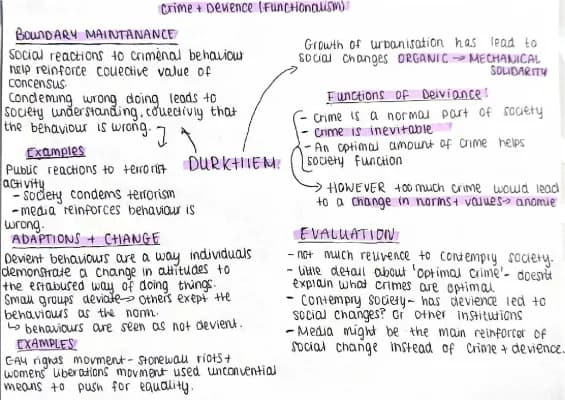 Crime + Devience (Functionalism)
BOUNDARY MAINTANANCE
Social reactions to criminal behaviour
help reinforce collective value of
concensus.
Condeming wrong doing leads to
society understanding, collectivly that
the behaviour is wrong.
Examples
Public reactions to terrorist
activity
- society condems terrorism
- media reinforces behaviour is
wrong.
ADAPTIONS + CHANGE
Devient behaviours are a way individuals
demonstrate a change in attitudes to
the estabused way of doing things.
Small groups deviate → Others exept the
behaviours as the norm.
↳ behaviours are seen as not devient.
EXAMPLES
GAY rights movment - stonewall riots +
womens liberations movment used unconvential
means to push for equality.
DURKHIEM
Growth of urbanisation has lead to
social changes ORGANIC → MECHANICAL
SOLIDARITY
Functions of Deiviance:
- Crime is a normal part of society
- Crime is inevitable
- An optimal amount of crime helps
society function
→ HOWEVER too much crime would lead
to a change in norms + values → anomie
EVALUATION
- not much relivence to contempry society.
- little detail about 'optimal crime' - doesnt
explain what crimes are optimal
- Contempry society - has devience led to
social changes? Or other institutions
- Media might be the main reinforcer of
social change instead of crime + devience.